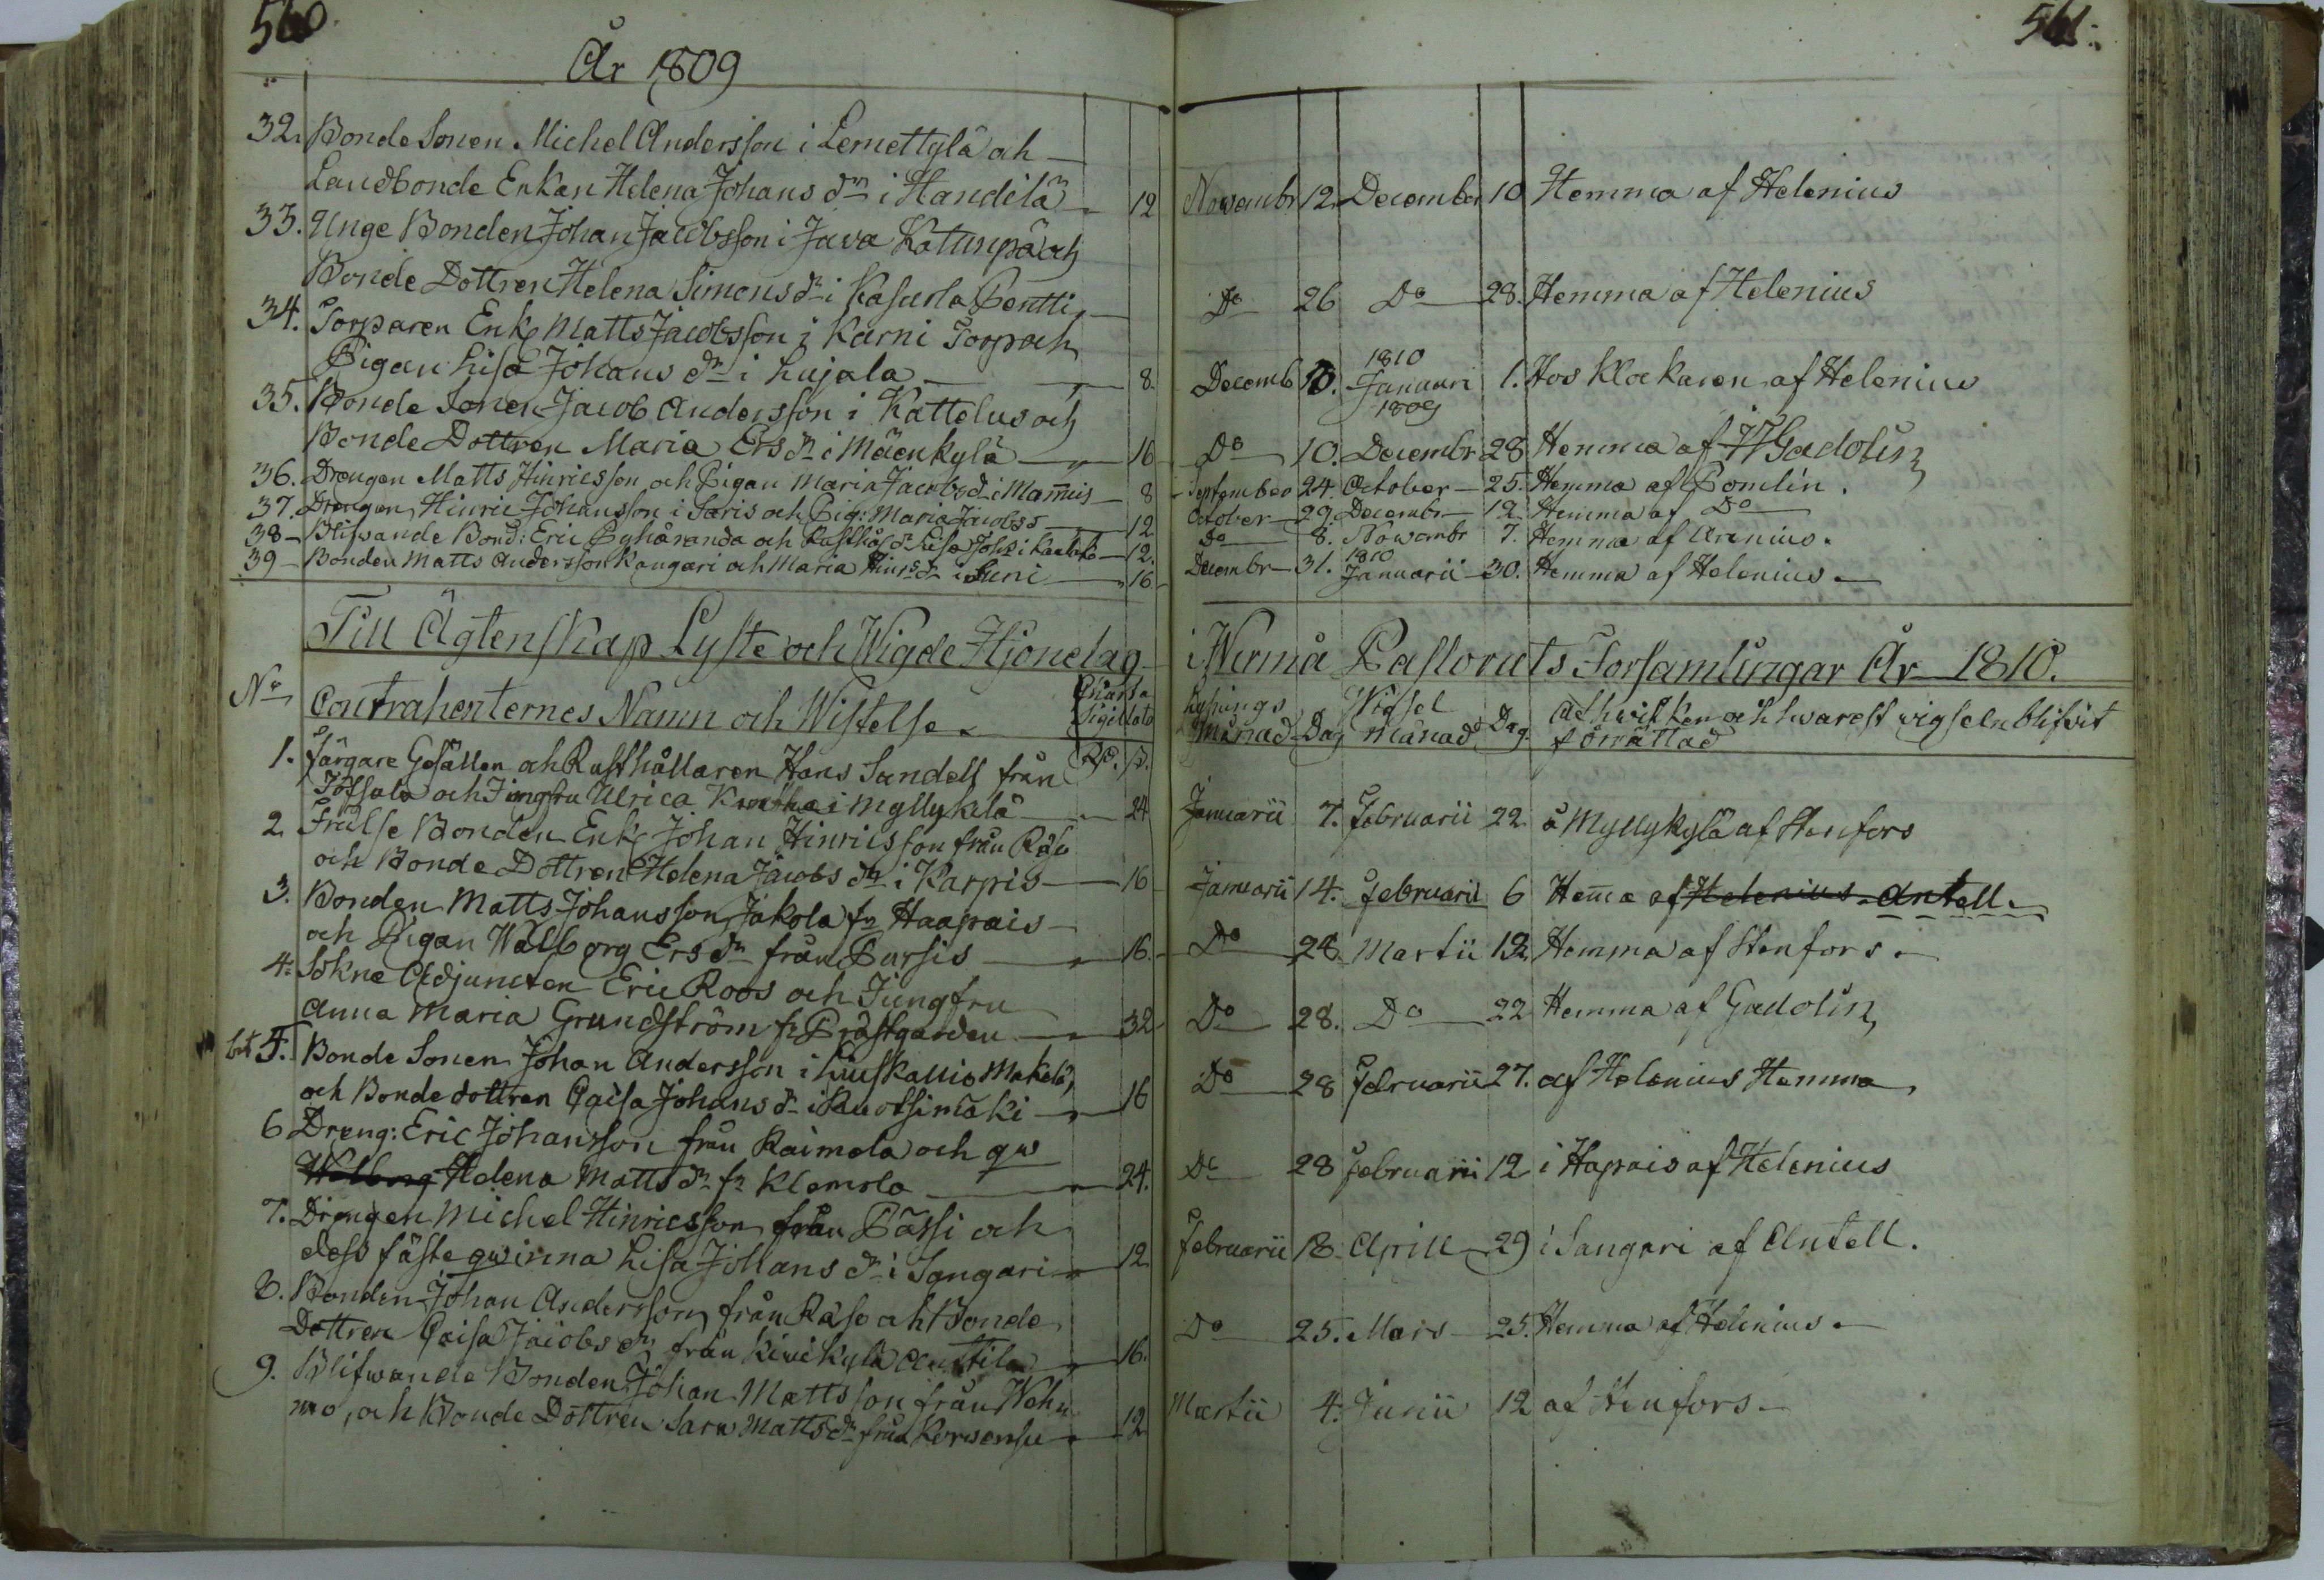 560
År 1809
32. Bonde Sonen Michel Andersson i Lemettylä och
Landbonde Enkan Helena Johans dr i Handila 12
33. Unge Bonden Johan Jacobsson i Java Katinpä och
Bonde Dottren Helena Simons dr i Kasurla Pentti
34. Torparen Enkl Matts Jacobsson i Karni Torp och
Pigan Lisa Johans dr i Lujala 8.
35. Bonde Sonen Jacob Andersson i Kattelus och
Bonde Dottren Maria Ers dr i Mäenkylä 16
36. Drengen Matts Hinricsson och Pigan Maria Jacobs d. i Mamis 8
37. Drengen Hinric Johansson i Saris och Pig: Maria Jacobs 12
38 Blifwande Bond: Eric Pyhäranda och Rusthål dr Lisa Johs i 12.
39 Bonden Matts Andersson Kangari och Maria Hinrs dr i Suni 16
Till Ägtenskap Lyste och Wigde Hjonelag
No Contrahenternes Namn och Wistelse Charta Sigillata
Rd. ß.
1. Färgare Gesällen och Rusthållaren Hans Sandell från
och Jungfru Ulrica i Myllykylä 24
2. Frälse Bonden Enkl Johan Hinricsson från Räso
och Bonde Dottren Helena Jacobs dr i Karpis 16
3. Bonden Matts Johansson Jakola fr Haapais
och Pigan Walborg Ers dr från Pursis 16.
4. Sokne Adjuncten Eric Roos och Jungfru
Anna Maria Grundström fr Prästgården 32
5. Bonde Sonen Johan Andersson i Makelä,
och Bonde dottren Caisa Johans dr i Ruotsimäki 16
6 Dreng: Eric Johansson från Raimola och qw
Walborg Helena Matts dr fr Klemola 24.
7. Drengen Michel Hinricsson från Pässi och
dess fästeqwinna Lisa Johans dr i Sangari 12
8. Bonden Johan Andersson från Räso och Bonde
Dottren Caisa Jacobs dr från Kivikylä Anttila 16.
9. Blifwande Bonden Johan Mattsson från Weh
mo, och Bonde Dottren Sara Matts dr från Korwensu 12
561.
Novembr 12. December 10 Hemma af Helenius
Do 26 Do 28. Hemma af Helenius
Decemb 10. 1810 Januari 1. Hos Klockaren af Helenius
1809
Do 10. Decembr 28 Hemma af Gadolin
September 24. October 25. Hemma af Pomlin.
October 29. Decembr 12 Hemma af Do
Do 8. Novembr 7. Hemma af Arenius.
Decembr 31. 1810 Januarii 30. Hemma af Helenius.
i Wirmå Pastorats Forsamlingar År 1810.
Lysnings Månad Dag Wigsel Månad Dag. Af hwilken och hwarest wigseln blifwit
förrättad
Januarii 7. Februarii 22 å Myllykylä af Stenfors
Januarii 14. Februarii 6 Hema af Helenius Antell.
Do 28 Martii 12. Hemma af Stenfors.
Do 28. Do 22 Hemma af Gadolin
Do 28 Februarii 27. af Helenius Hemma
Do 28 Februarii 12 i Hapais af Helenius
Februarii 18 Aprill 29 i Sangari af Antell.
Do 25. Mars 25. Hemma af Helenius.
Martii 4. Junii 12 af Stenfors.